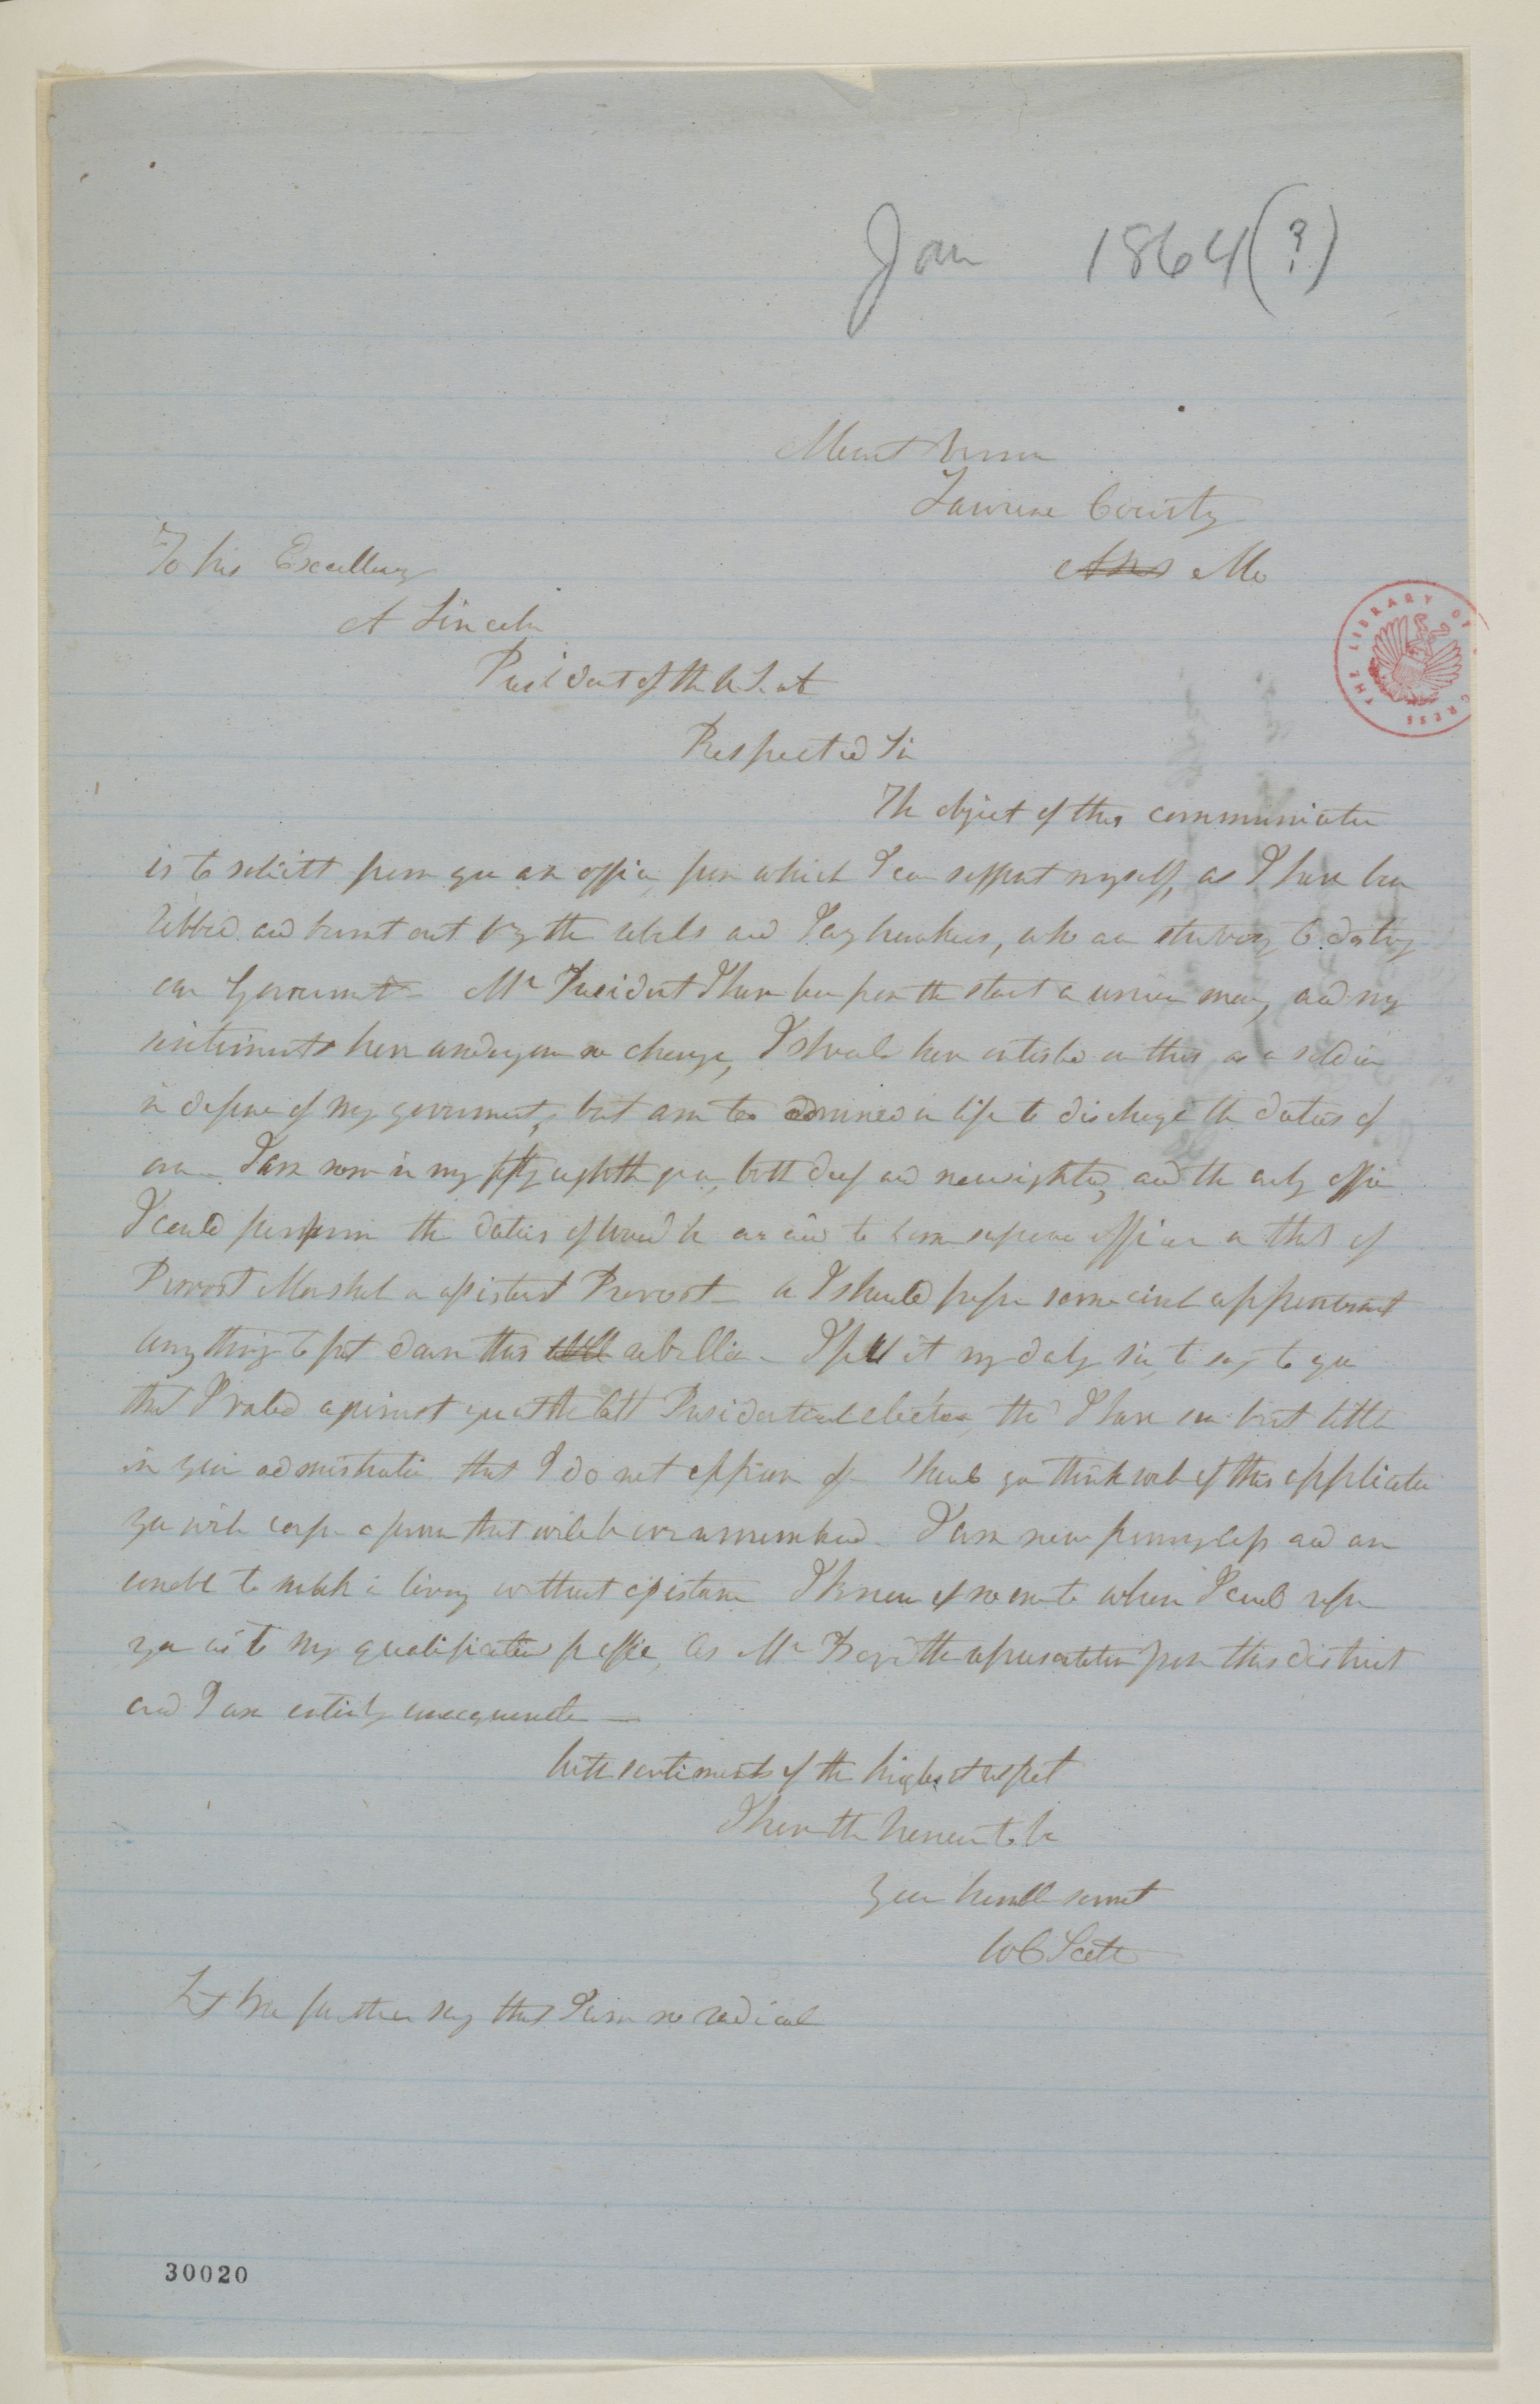 Jan 1864(?)
Mount Vernon
Lawrence County
Ark Mo
To his Excellency
A Lincoln
President of the U. States
Respected Sir
The object of this communication
is to solicitt from you an office, from which I can support myself, as I have been
robbed and burnt out by the rebels and Jayhawkers, who are striving to destroy
our Government - Mr President I have been from the start a union man, and my
sentiments have undergone no change, I should have enlisted on this as a soldier
in defence of my government, but am too advanced in life to discharge the duties of
one - I am now in my fifty eighth year, both deaf and nearsighted, and the only office
I could perform the duties of would be an aid to some superior officer or that of
Provost Marshal or assistant Provost - or I should prefer some civil appointment
any thing to put down this rebellion - I feel it my duty sir, to say to you
that I voted against you at the last Presidential election, tho I have seen but little
in your administration that I do not approve of - Should you think well of this application
you will confer a favor that will be ever remembered - I am now pennyless and am
unable to make a living without assistance I know of no one to whom I could refer
you as to my qualification for office, as Mr Boyd the representative from this district
and I are entirely unacquainted —
With sentiments of the highest respect
I have the honour to be
Your humble servant
W C Scott
Let me further say that I am no radical
THE LIBRARY OF CONGRESS
30020